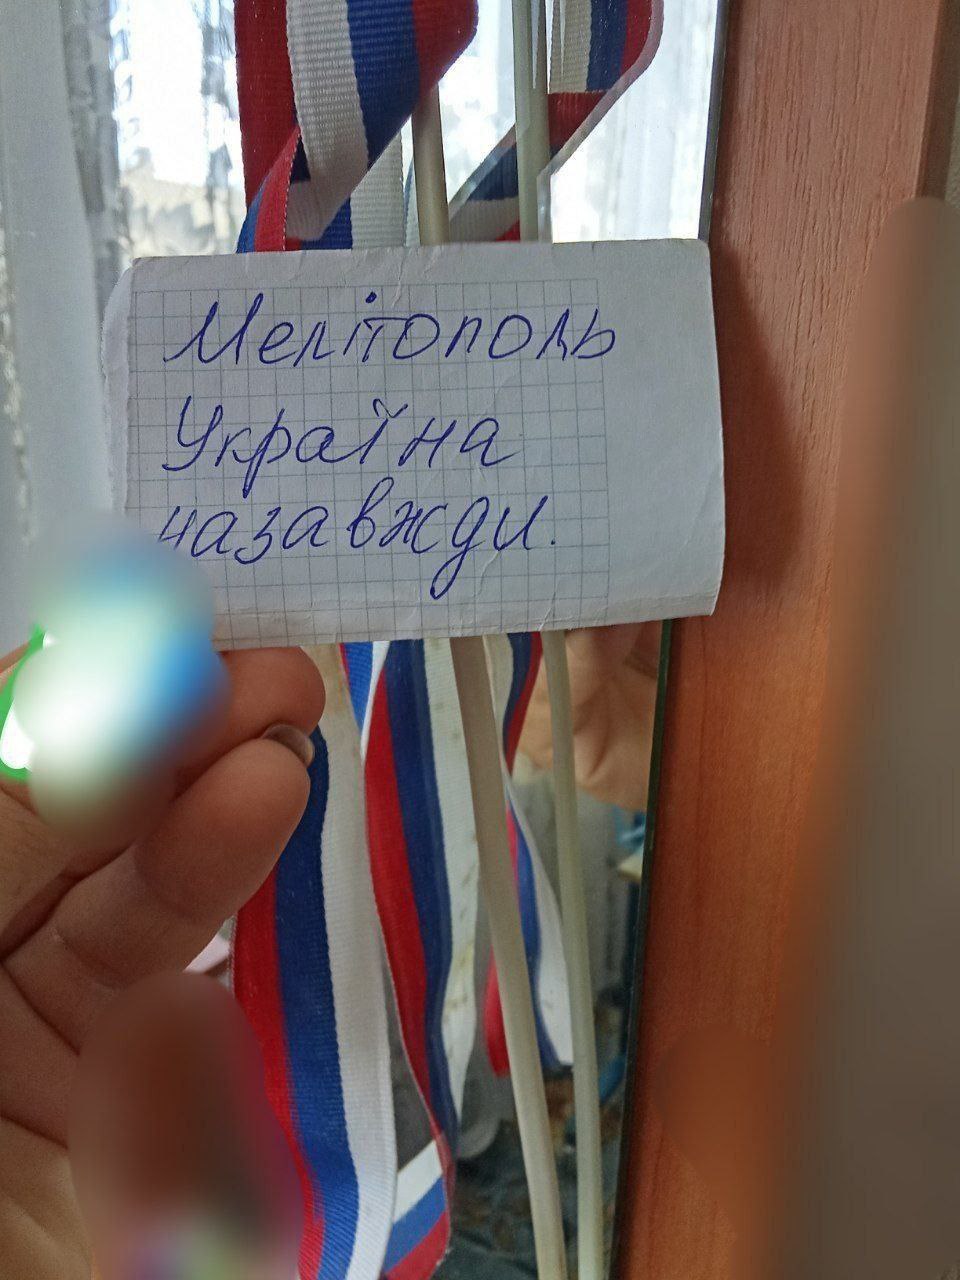 Мелітополь
Україна
назавжди.